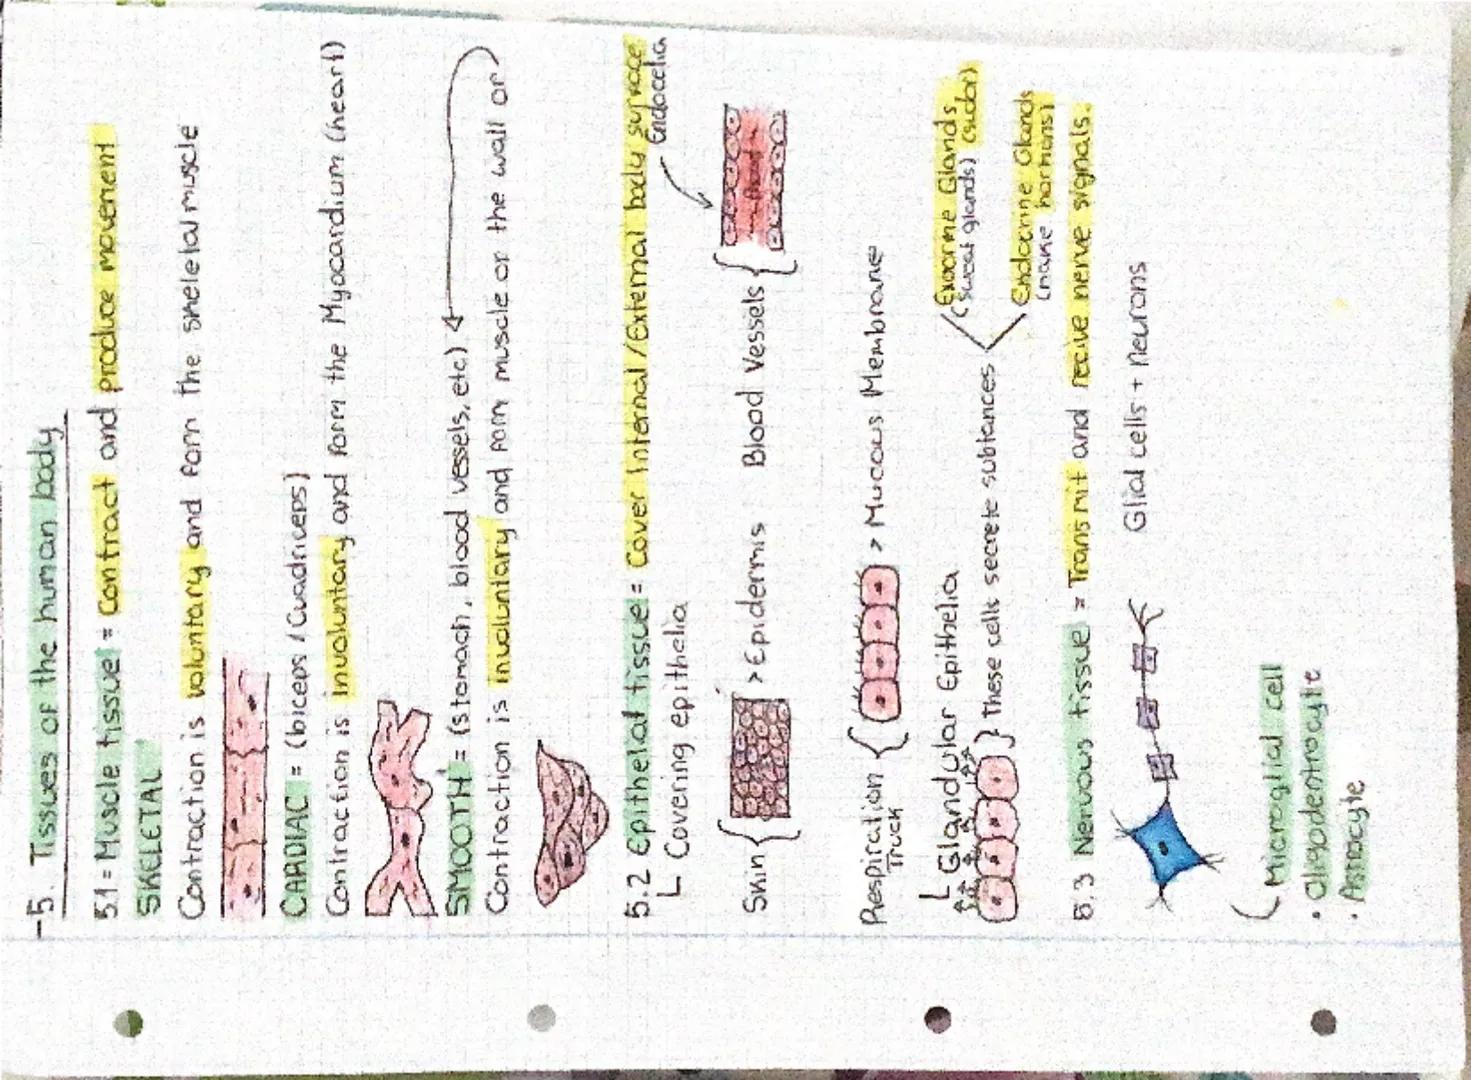 -5. Tissues of the human body
5.1 = Muscle tissue = Contract and produce movement
SKELETAL
Contraction is voluntary and form the skeletal muscle
CARDIAC = (biceps / Cuadriceps)
Contraction is involuntary and form the Myocardium (heart)
SMOOTH = (stomach, blood vessels, etc)
Contraction is involuntary and form muscle or the wall or
5.2 epithelal tissue = Cover Internal / External body surface
Covering epithelia
Endocelia
Skin { > Epidermis Blood Vessels {
Respiration Truck { > Mucous Membrane
Glandular Epithelia
} These cells secrete subtances
Exocrine Glands
(sweat glands) (sudor)
Endocrine Glands
(make hormons)
5.3 Nervous tissue = Transmit and recive nerve signals.
Glial cells + neurons
Microglial cell
• Oligodentrocyte
• Astrocyte